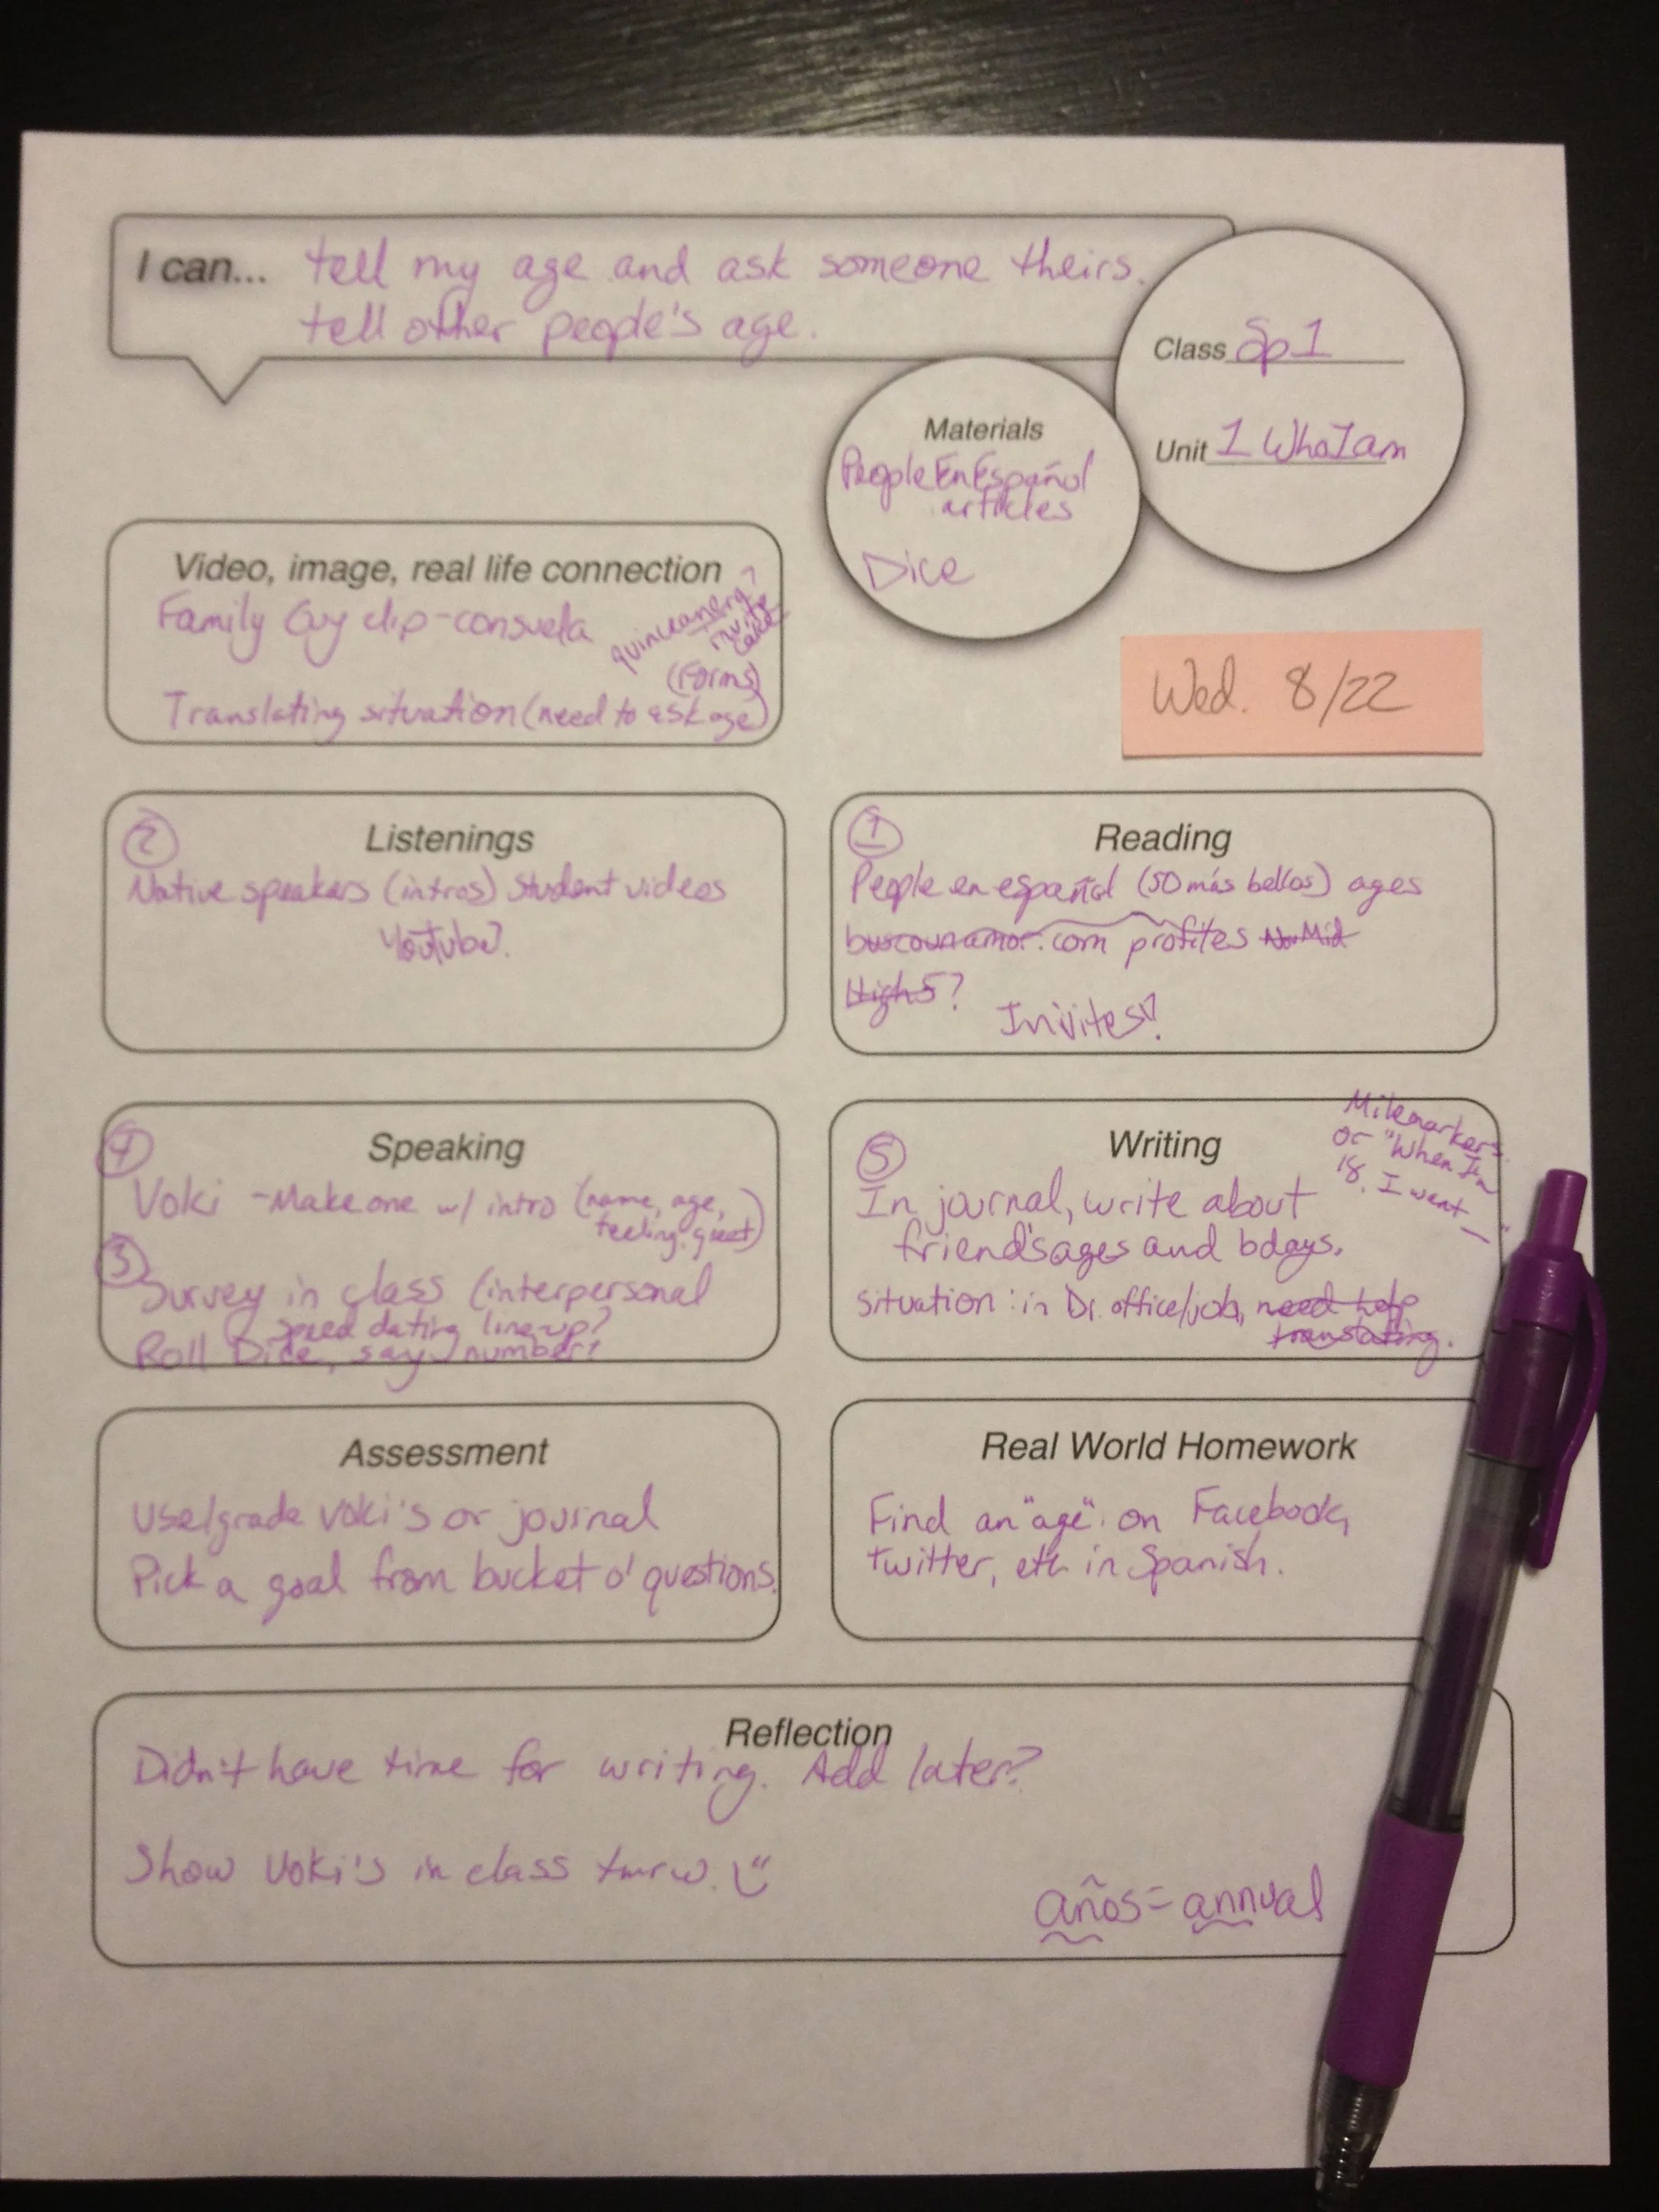 I can... tell my age and ask someone theirs.
tell other people's age.
Class Sp 1
Unit 1 Who I am
Materials
People En Español
articles
Dice
Video, image, real life connection
Family Guy clip - consuela
quinceanera?
invite
cake
(Forms)
Translating situation (need to ask age)
Wed. 8/22
2 Listenings
Native speakers (intros) Student videos
Youtube?
1 Reading
People en español (50 más bellos) ages
buscounamor.com profiles Nov Mid
High 5?
Invites?
4 Speaking
Voki - Make one w/ intro (name, age,
feeling, greet)
3
Survey in class (interpersonal
speed dating line-up?
Roll Dice, say number?
5 Writing
Milemarkers
or "When I'm
18, I want __"
In journal, write about
friend's ages and bdays.
situation: in Dr. office/job, need help
translating.
Assessment
Use/grade Voki's or journal
Pick a goal from bucket o' questions.
Real World Homework
Find an "age" on Facebook,
twitter, etc in Spanish.
Reflection
Didn't have time for writing. Add later?
Show Voki's in class tmrw.
años = annual